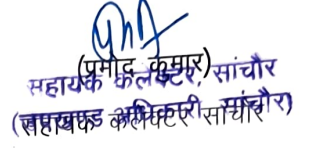 (प्रमोद कुमार)
सहायक कलेक्टर, सांचौर
(उपखण्ड अधिकारी सांचौर)
सहायक कलेक्टर सांचौर